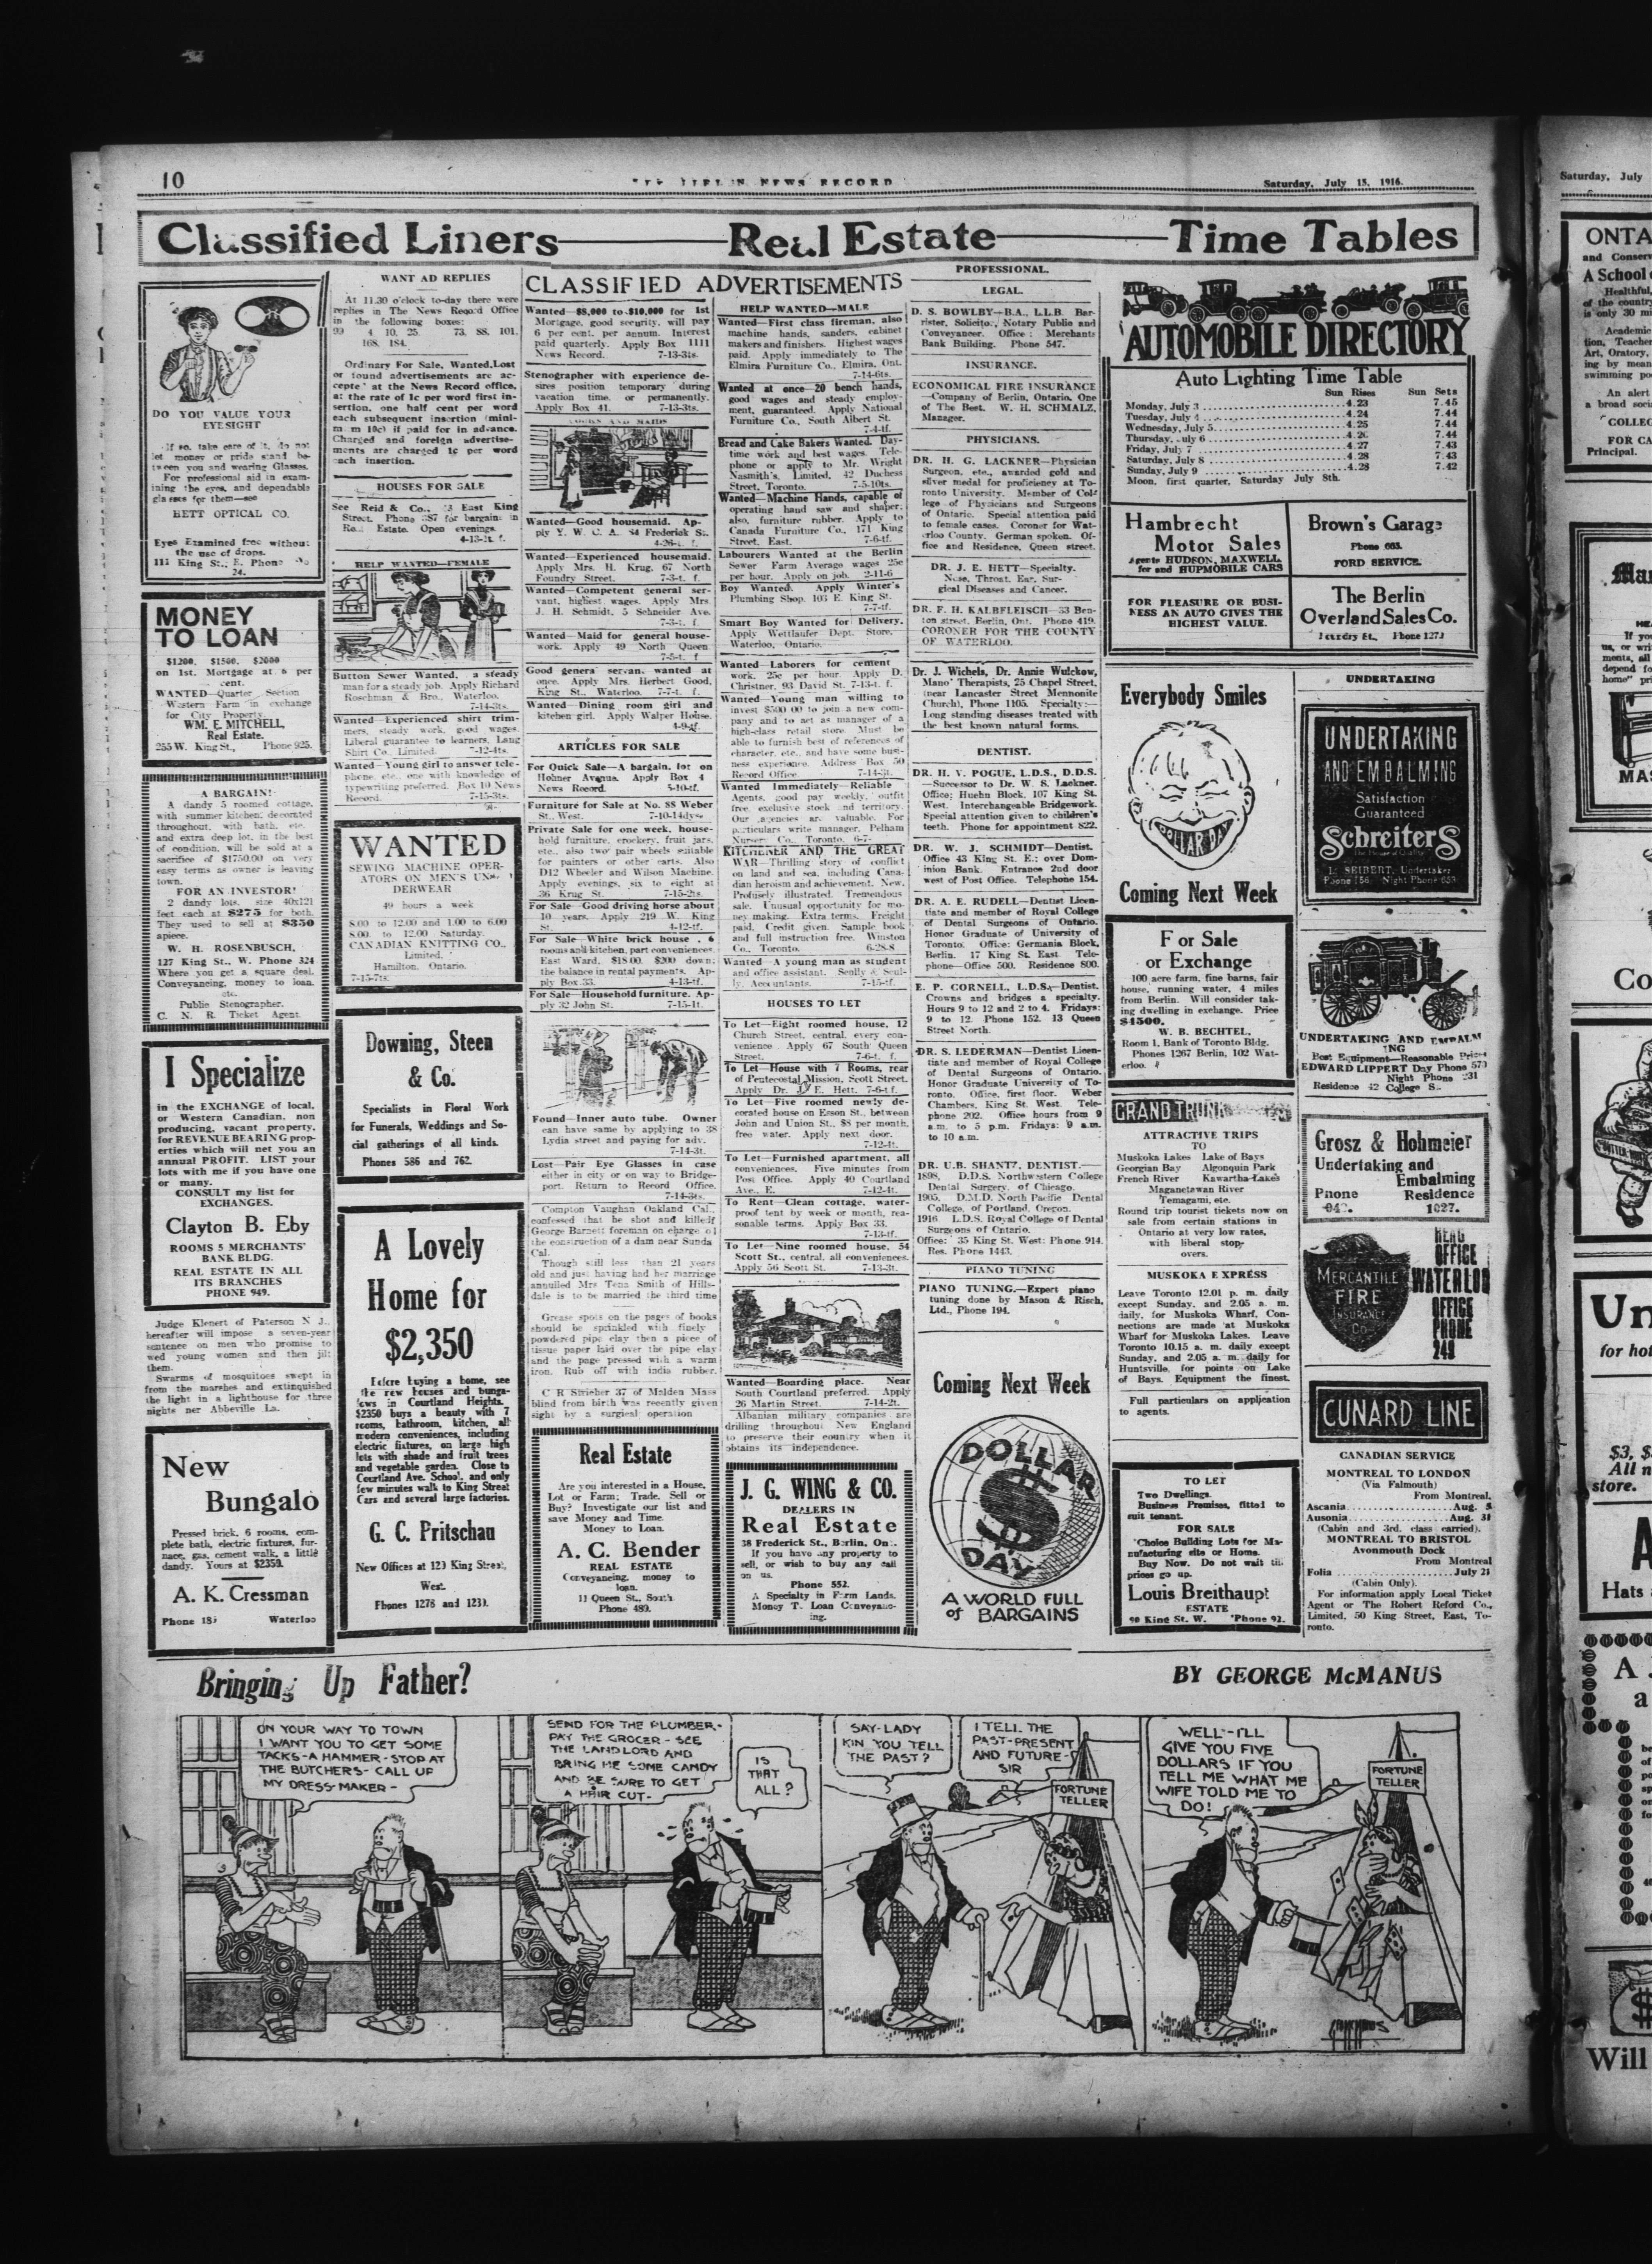 10
NEWS RECORD
Saturday, July 15, 1916.
Classified Liners
Real Estate
Time Tables
DO YOU VALUE YOUR
EYESIGHT
If so, take care of it, do not
let money or pride stand be-
tween you and wearing Glasses.
For professional aid in exam-
ining the eyes, and dependable
glasses for them—see
HETT OPTICAL CO.
Eyes Examined free without
the use of drops.
111 King St., E. Phone No
24.
MONEY
TO LOAN
$1200, $1500, $2000
on 1st. Mortgage at 6 per
cent.
WANTED—Quarter Section
Western Farm in exchange
for City Property.
WM. E. MITCHELL,
Real Estate.
255 W. King St., Phone 925.
A BARGAIN!
A dandy 5 roomed cottage,
with summer kitchen; decorated
throughout, with bath, etc.
and extra deep lot, in the best
of condition, will be sold at a
sacrifice of $1750.00 on very
easy terms as owner is leaving
town.
FOR AN INVESTOR!
2 dandy lots, size 40x121
feet each at $275 for both.
They used to sell at $350
apiece.
W. H. ROSENBUSCH,
127 King St., W. Phone 324
Where you get a square deal.
Conveyancing, money to loan,
etc.
Public Stenographer.
C. N. R. Ticket Agent.
I Specialize
in the EXCHANGE of local,
or Western Canadian, non
producing, vacant property,
for REVENUE BEARING prop-
erties which will net you an
annual PROFIT. LIST your
lots with me if you have one
or many.
CONSULT my list for
EXCHANGES.
Clayton B. Eby
ROOMS 5 MERCHANTS'
BANK BLDG.
REAL ESTATE IN ALL
ITS BRANCHES
PHONE 949.
Judge Klenert of Paterson N J.,
hereafter will impose a seven-year
sentence on men who promise to
wed young women and then jilt
them.
Swarms of mosquitoes swept in
from the marshes and extinguished
the light in a lighthouse for three
nights ner Abbeville La.
New
Bungalo
Pressed brick, 6 rooms, com-
plete bath, electric fixtures, fur-
nace, gas, cement walk, a little
dandy. Yours at $2350.
A. K. Cressman
Phone Waterloo
WANT AD REPLIES
At 11.30 o'clock to-day there were
replies in The News Record Office
in the following boxes:
99 4, 10, 25, 73, 88, 101,
168, 184.
Ordinary For Sale, Wanted, Lost
or found advertisements are ac-
cepted at the News Record office,
at the rate of 1c per word first in-
sertion, one half cent per word
each subsequent insertion (mini-
mum 10c) if paid for in advance.
Charged and foreign advertise-
ments are charged 1c per word
each insertion.
HOUSES FOR SALE
See Reid & Co., East King
Street. Phone for bargains in
Real Estate. Open evenings.
4-13-1t. f.
HELP WANTED—FEMALE
Button Sewer Wanted, a steady
man for a steady job. Apply Richard
Roschman & Bro., Waterloo.
7-14-3ts.
Wanted—Experienced shirt trim-
mers, steady work, good wages.
Liberal guarantee to learners, Lang
Shirt Co., Limited. 7-12-4ts.
Wanted—Young girl to answer tele-
phone, etc., one with knowledge of
typewriting preferred. Box 10 News
Record. 7-15-3ts.
WANTED
SEWING MACHINE OPER-
ATORS ON MEN'S UN-
DERWEAR
49 hours a week
8.00 to 12.00 and 1.00 to 6.00
8.00 to 12.00 Saturday.
CANADIAN KNITTING CO.,
Limited.
Hamilton, Ontario.
7-15-7ts.
Downing, Steen
& Co.
Specialists in Floral Work
for Funerals, Weddings and So-
cial gatherings of all kinds.
Phones 586 and 762.
A Lovely
Home for
$2,350
Before buying a home, see
the new houses and bunga-
lows in Courtland Heights.
$2350 buys a beauty with 7
rooms, bathroom, kitchen, all
modern conveniences, including
electric fixtures, on large high
lots with shade and fruit trees
and vegetable garden. Close to
Courtland Ave. School, and only
few minutes walk to King Street
Cars and several large factories.
G. C. Pritschau
New Offices at 123 King Street,
West.
Phones 1276 and 1231.
CLASSIFIED ADVERTISEMENTS
Wanted—$8,000 to $10,000 for 1st
Mortgage, good security, will pay
6 per cent. per annum. Interest
paid quarterly. Apply Box 1111
News Record. 7-13-3ts.
Stenographer with experience de-
sires position temporary during
vacation time, or permanently.
Apply Box 41. 7-13-3ts.
COOKS AND MAIDS
Wanted—Good housemaid. Ap-
ply Y. W. C. A. 84 Frederick St.
4-26-t. f.
Wanted—Experienced housemaid.
Apply Mrs. H. Krug, 67 North
Foundry Street. 7-3-t. f.
Wanted—Competent general ser-
vant, highest wages. Apply Mrs.
J. H. Schmidt, 5 Schneider Ave.
7-3-t. f.
Wanted—Maid for general house-
work. Apply 49 North Queen
7-5-t. f
Good general servant wanted at
once. Apply Mrs. Herbert Good,
King St., Waterloo. 7-7-t. f.
Wanted—Dining room girl and
kitchen girl. Apply Walper House.
4-9-tf.
ARTICLES FOR SALE
For Quick Sale—A bargain, lot on
Hohner Avenue. Apply Box 4
News Record. 5-10-tf.
Furniture for Sale at No. 88 Weber
St., West. 7-10-14dys
Private Sale for one week, house-
hold furniture, crockery, fruit jars,
etc., also two pair wheels suitable
for painters or other carts. Also
D12 Wheeler and Wilson Machine.
Apply evenings, six to eight at
36 Krug St. 7-15-2ts.
For Sale—Good driving horse about
10 years. Apply 219 W. King
St. 4-12-tf.
For Sale—White brick house, 6
rooms and kitchen, part conveniences,
East Ward, $1800. $200 down;
the balance in rental payments. Ap-
ply Box 33. 4-13-tf.
For Sale—Household furniture. Ap-
ply 32 John St. 7-15-1t.
Found—Inner auto tube. Owner
can have same by applying to 38
Lydia street and paying for adv.
7-14-3t.
Lost—Pair Eye Glasses in case
either in city or on way to Bridge-
port. Return to Record Office.
7-14-3ts.
Compton Vaughan Oakland Cal.,
confessed that he shot and killed
George Barnett foreman on charge of
the construction of a dam near Sunda
Cal.
Though still less than 21 years
old and just having had her marriage
annulled Mrs Tena Smith of Hills-
dale is to be married the third time
Grease spots on the pages of books
should be sprinkled with finely
powdered pipe clay then a piece of
tissue paper laid over the pipe clay
and the page pressed with a warm
iron. Rub off with india rubber.
C R Strieber 37 of Malden Mass
blind from birth was recently given
sight by a surgical operation
Real Estate
Are you interested in a House,
Lot or Farm; Trade, Sell or
Buy? Investigate our list and
save Money and Time.
Money to Loan.
A. C. Bender
REAL ESTATE
Conveyancing, money to
loan.
11 Queen St., South.
Phone 489.
HELP WANTED—MALE
Wanted—First class fireman, also
machine hands, sanders, cabinet
makers and finishers. Highest wages
paid. Apply immediately to The
Elmira Furniture Co., Elmira, Ont.
7-14-6ts.
Wanted at once—20 bench hands,
good wages and steady employ-
ment, guaranteed. Apply National
Furniture Co., South Albert St.
7-4-tf.
Bread and Cake Bakers Wanted. Day-
time work and best wages. Tele-
phone or apply to Mr. Wright
Nasmith's, Limited, 42 Duchess
Street, Toronto. 7-5-10ts.
Wanted—Machine Hands, capable of
operating hand saw and shaper;
also, furniture rubber. Apply to
Canada Furniture Co., 171 King
Street, East. 7-6-tf.
Labourers Wanted at the Berlin
Sewer Farm Average wages 25c
per hour. Apply on job. 2-11-6
Boy Wanted. Apply Winter's
Plumbing Shop, 103 E. King St.
7-7-tf.
Smart Boy Wanted for Delivery.
Apply Wettlaufer Dept. Store.
Waterloo, Ontario.
Wanted—Laborers for cement
work, 25c per hour. Apply D.
Christner, 93 David St. 7-13-t. f.
Wanted—Young man willing to
invest $500 00 to join a new com-
pany and to act as manager of a
high-class retail store. Must be
able to furnish best of references of
character, etc., and have some busi-
ness experience. Address Box 50
Record Office. 7-14-3t.
Wanted Immediately—Reliable
Agents, good pay weekly, outfit
free, exclusive stock and territory.
Our agencies are valuable. For
particulars write manager, Pelham
Nursery Co., Toronto. 6-7-
KITCHENER AND THE GREAT
WAR—Thrilling story of conflict
on land and sea, including Cana-
dian heroism and achievement. New.
Profusely illustrated. Tremendous
sale. Unusual opportunity for mo-
ney making. Extra terms. Freight
paid. Credit given. Sample book
and full instruction free. Winston
Co., Toronto. 6-28-8
Wanted—A young man as student
and office assistant. Scully & Scul-
ly, Accountants. 7-15-tf.
HOUSES TO LET
To Let—Eight roomed house, 12
Church Street, central, every con-
venience. Apply 67 South Queen
Street. 7-6-t. f.
To Let—House with 7 Rooms, rear
of Pentecostal Mission, Scott Street.
Apply Dr. J. E. Hett. 7-6-t.f.
To Let—Five roomed newly de-
corated house on Esson St., between
John and Union St., $8 per month,
free water. Apply next door.
7-12-4t.
To Let—Furnished apartment, all
conveniences. Five minutes from
Post Office. Apply 40 Courtland
Ave., E. 7-12-4t.
To Rent—Clean cottage, water-
proof tent by week or month, rea-
sonable terms. Apply Box 33.
7-13-tf.
To Let—Nine roomed house, 54
Scott St., central, all conveniences.
Apply 56 Scott St. 7-13-3t.
Wanted—Boarding place. Near
South Courtland preferred. Apply
26 Martin Street. 7-14-2t.
Albanian military companies are
drilling throughout New England
to preserve their country when it
obtains its independence.
J. G. WING & CO.
DEALERS IN
Real Estate
38 Frederick St., Berlin, Ont.
If you have any property to
sell, or wish to buy any call
on us.
Phone 552.
A Specialty in Farm Lands.
Money To Loan Conveyanc-
ing.
PROFESSIONAL.
LEGAL.
D. S. BOWLBY—B.A., L.L.B. Bar-
rister, Solicitor, Notary Public and
Conveyancer. Office: Merchants
Bank Building. Phone 547.
INSURANCE.
ECONOMICAL FIRE INSURANCE
—Company of Berlin, Ontario. One
of The Best. W. H. SCHMALZ,
Manager.
PHYSICIANS.
DR. H. G. LACKNER—Physician
Surgeon, etc., awarded gold and
silver medal for proficiency at To-
ronto University. Member of Col-
lege of Physicians and Surgeons
of Ontario. Special attention paid
to female cases. Coroner for Wat-
erloo County. German spoken. Of-
fice and Residence, Queen street.
DR. J. E. HETT—Specialty.
Nose, Throat, Ear, Sur-
gical Diseases and Cancer.
DR. F. H. KALBFLEISCH—33 Ben-
ton street, Berlin, Ont. Phone 419.
CORONER FOR THE COUNTY
OF WATERLOO.
Dr. J. Wichels, Dr. Annie Wulckow,
Mano' Therapists, 25 Chapel Street,
(near Lancaster Street Mennonite
Church), Phone 1105. Specialty:—
Long standing diseases treated with
the best known natural forms.
DENTIST.
DR. H. V. POGUE, L.D.S., D.D.S.
—Successor to Dr. W. S. Lackner.
Office; Huehn Block, 107 King St.
West. Interchangeable Bridgework.
Special attention given to children's
teeth. Phone for appointment 822.
DR. W. J. SCHMIDT—Dentist.
Office 43 King St. E.; over Dom-
inion Bank. Entrance 2nd door
west of Post Office. Telephone 154.
DR. A. E. RUDELL—Dentist Licen-
tiate and member of Royal College
of Dental Surgeons of Ontario.
Honor Graduate of University of
Toronto. Office: Germania Block,
Berlin. 17 King St. East. Tele-
phone—Office 500. Residence 800.
E. P. CORNELL, L.D.S.,—Dentist.
Crowns and bridges a specialty.
Hours 9 to 12 and 2 to 4. Fridays:
9 to 12. Phone 152. 13 Queen
Street North.
DR. S. LEDERMAN—Dentist Licen-
tiate and member of Royal College
of Dental Surgeons of Ontario.
Honor Graduate University of To-
ronto. Office, first floor, Weber
Chambers, King St. West. Tele-
phone 202. Office hours from 9
a.m. to 5 p.m. Fridays: 9 a.m.
to 10 a.m.
DR. U.B. SHANTZ, DENTIST.—
1898, D.D.S. Northwestern College
Dental Surgery, of Chicago.
1905, D.M.D. North Pacific Dental
College, of Portland, Oregon.
1916 L.D.S. Royal College of Dental
Surgeons of Ontario.
Office: 35 King St. West: Phone 914.
Res. Phone 1443.
PIANO TUNING
PIANO TUNING.—Expert piano
tuning done by Mason & Risch,
Ltd., Phone 194.
Coming Next Week
DOLLAR
$
DAY
A WORLD FULL
of BARGAINS
AUTOMOBILE DIRECTORY
Auto Lighting Time Table
Sun Rises Sun Sets
Monday, July 3 4.23 7.45
Tuesday, July 4 4.24 7.44
Wednesday, July 5 4.25 7.44
Thursday, July 6 4.26 7.44
Friday, July 7 4.27 7.43
Saturday, July 8 4.28 7.43
Sunday, July 9 4.28 7.42
Moon, first quarter, Saturday July 8th.
Hambrecht
Motor Sales
Agents HUDSON, MAXWELL,
for and HUPMOBILE CARS
Brown's Garage
Phone 665.
FORD SERVICE.
FOR PLEASURE OR BUSI-
NESS AN AUTO GIVES THE
HIGHEST VALUE.
The Berlin
Overland Sales Co.
Foundry St., Phone 1273
Everybody Smiles
DOLLAR DAY
Coming Next Week
For Sale
or Exchange
100 acre farm, fine barns, fair
house, running water, 4 miles
from Berlin. Will consider tak-
ing dwelling in exchange. Price
$4500.
W. B. BECHTEL,
Room 1, Bank of Toronto Bldg.
Phones 1267 Berlin, 102 Wat-
erloo.
GRAND TRUNK
ATTRACTIVE TRIPS
TO
Muskoka Lakes Lake of Bays
Georgian Bay Algonquin Park
French River Kawartha Lakes
Maganetawan River
Temagami, etc.
Round trip tourist tickets now on
sale from certain stations in
Ontario at very low rates,
with liberal stop-
overs.
MUSKOKA EXPRESS
Leave Toronto 12.01 p. m. daily
except Sunday, and 2.05 a. m.
daily, for Muskoka Wharf, Con-
nections are made at Muskoka
Wharf for Muskoka Lakes. Leave
Toronto 10.15 a. m. daily except
Sunday, and 2.05 a. m. daily for
Huntsville, for points on Lake
of Bays. Equipment the finest.
Full particulars on application
to agents.
TO LET
Two Dwellings.
Business Premises, fitted to
suit tenant.
FOR SALE
Choice Building Lots for Ma-
nufacturing site or Home.
Buy Now. Do not wait til.
prices go up.
Louis Breithaupt
ESTATE
90 King St. W. Phone 92.
UNDERTAKING
UNDERTAKING
AND EMBALMING
Satisfaction
Guaranteed
Schreiters
The House of Quality
L. SEIBERT, Undertaker
Phone 156. Night Phone 659
UNDERTAKING AND EMBALM
ING
Best Equipment—Reasonable Prices
EDWARD LIPPERT Day Phone 573
Night Phone 231
Residence 42 College St
Grosz & Hohmeier
Undertaking and
Embalming
Phone Residence
1027.
MERCANTILE
FIRE
INSURANCE
Co
HEAD
OFFICE
WATERLOO
OFFICE
PHONE
249
CUNARD LINE
CANADIAN SERVICE
MONTREAL TO LONDON
(Via Falmouth)
From Montreal.
Ascania Aug. 5
Ausonia Aug. 31
(Cabin and 3rd. class carried).
MONTREAL TO BRISTOL
Avonmouth Dock
From Montreal
Folia July 21
(Cabin Only).
For information apply Local Ticket
Agent or The Robert Reford Co.,
Limited, 50 King Street, East, To-
ronto.
Bringing Up Father?
BY GEORGE McMANUS
ON YOUR WAY TO TOWN
I WANT YOU TO GET SOME
TACKS-A HAMMER-STOP AT
THE BUTCHERS- CALL UP
MY DRESS-MAKER-
SEND FOR THE PLUMBER-
PAY THE GROCER- SEE
THE LANDLORD AND
BRING ME SOME CANDY
AND BE SURE TO GET
A HAIR CUT-
IS
THAT
ALL?
SAY-LADY
KIN YOU TELL
THE PAST?
I TELL THE
PAST-PRESENT
AND FUTURE-
SIR
FORTUNE
TELLER
WELL-I'LL
GIVE YOU FIVE
DOLLARS IF YOU
TELL ME WHAT ME
WIFE TOLD ME TO
DO!
FORTUNE
TELLER
Saturday, July
ONTA
and Conserv
A School
Healthful,
of the country
is only 30 mi
Academic
tion, Teacher
Art, Oratory,
ing by mean
swimming po
An alert
a broad soci
COLLEG
FOR CA
Principal.
If you
us, or wri
ments, all
depend fo
home" pri
MAS
Co
Un
for hot
$3, $
All n
store.
A
Hats
A
a
Will